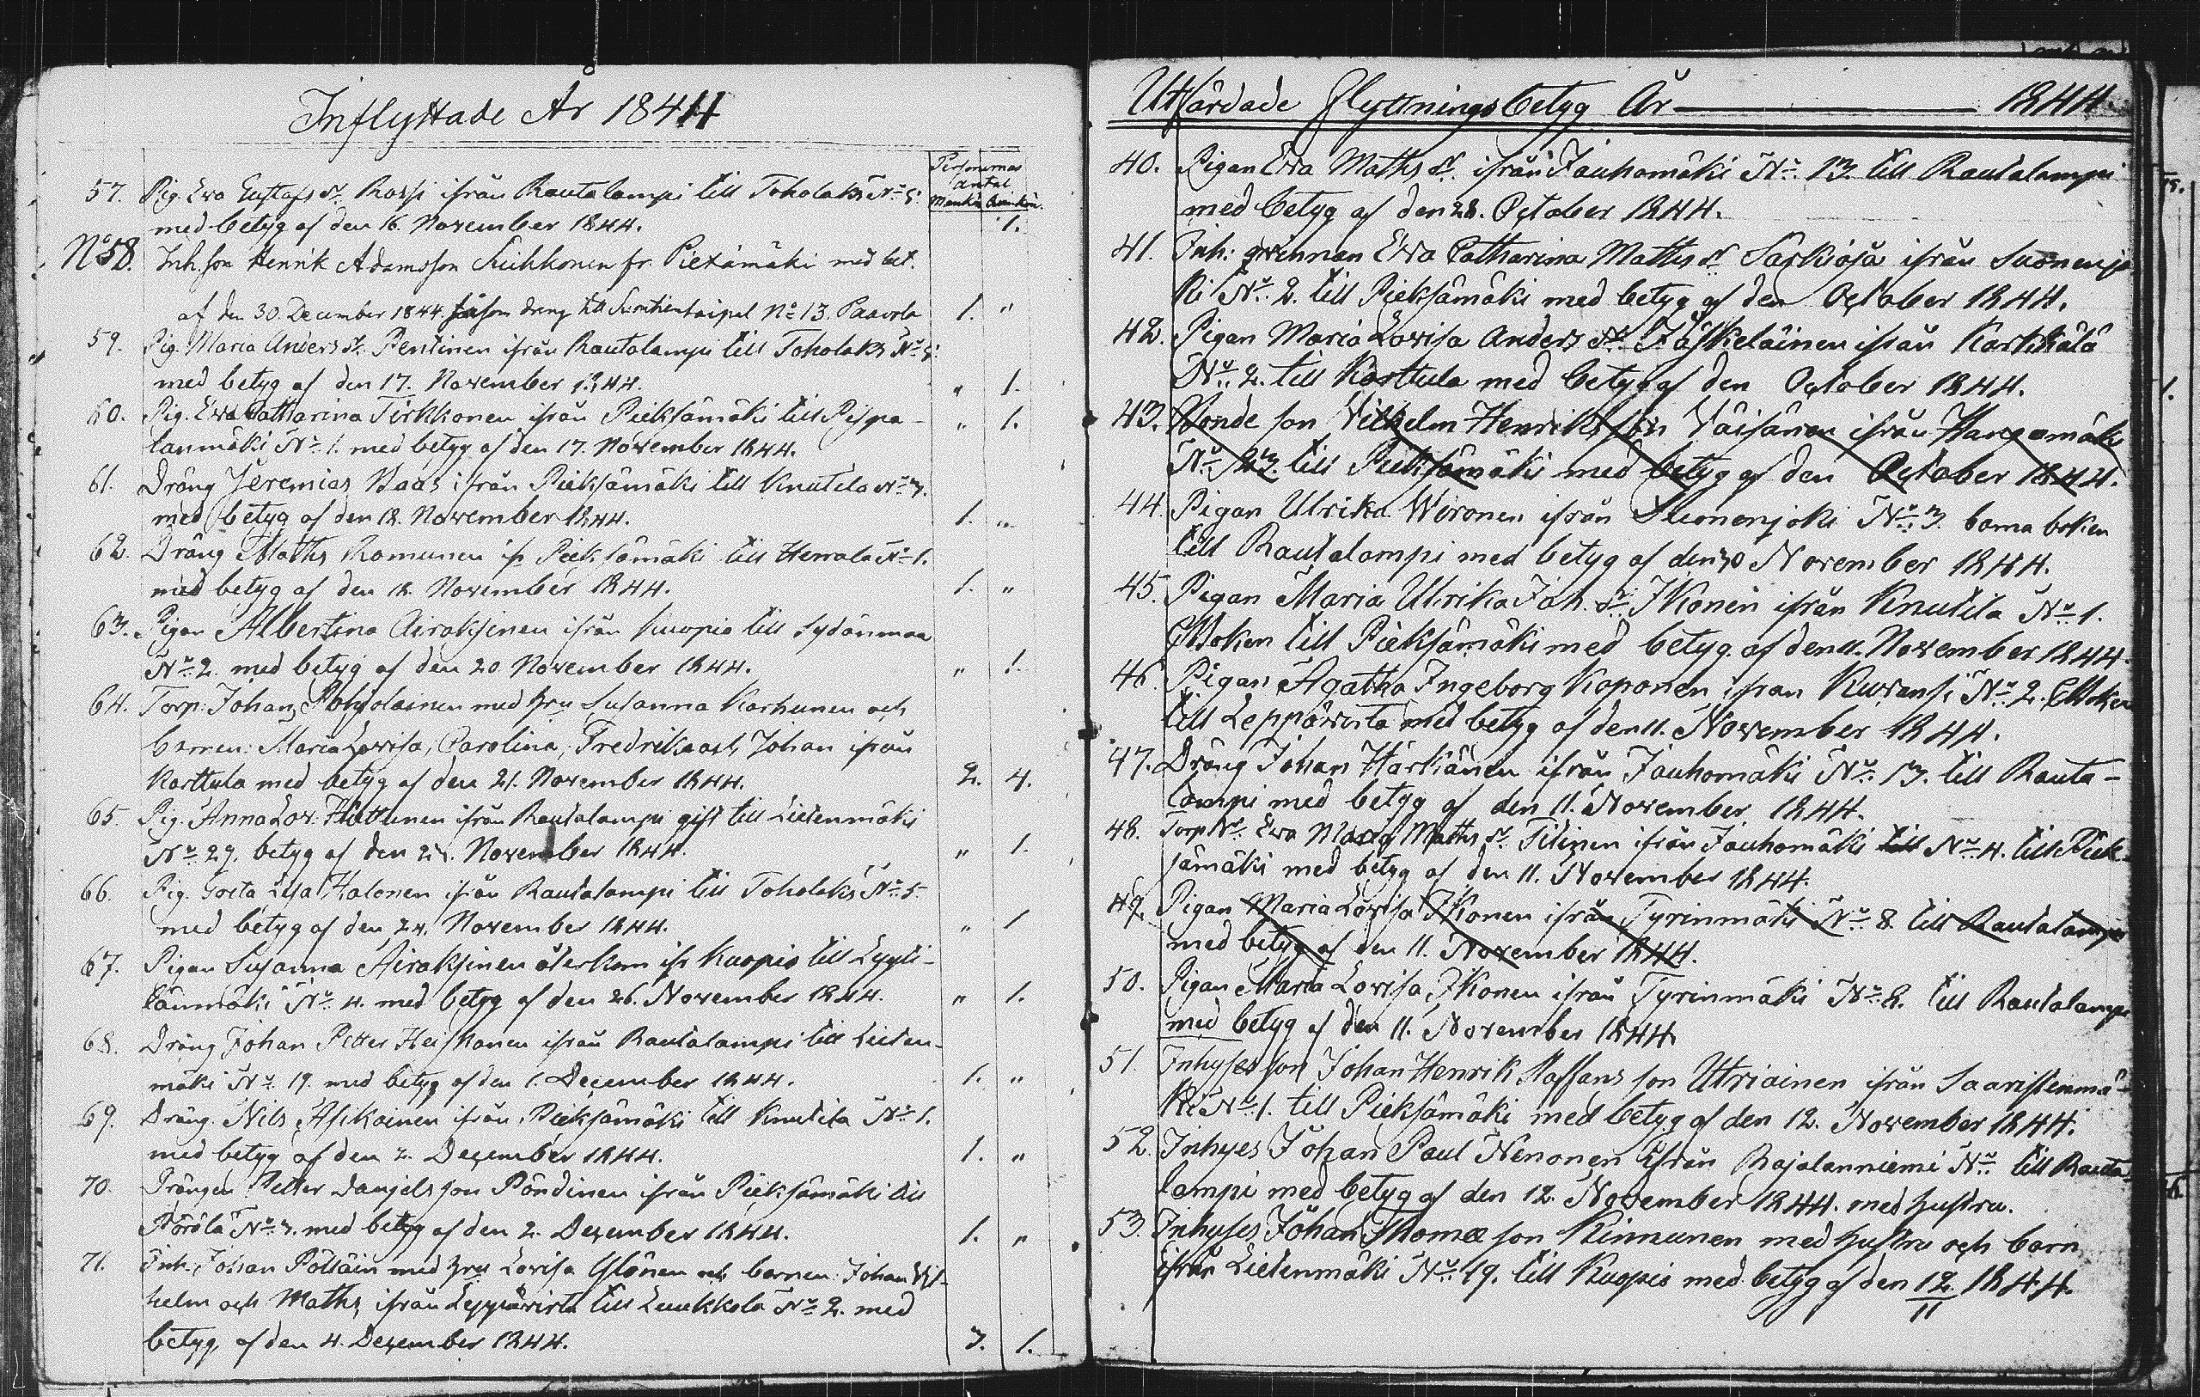 Inflyttade År 1844
Personernas
antal
Mankön Qvinkön.
57. Pig. Eva Gustafs dr. Rossi ifrån Rautalampi till Toholaks No 5.
med betyg af den 16. November 1844. 1.
No 58. Inh. son Henrik Adamsson Kuhkonen fr. Pieksämäki med bet.
af den 30. December 1844. såsom dreng till Suontientaipal No 13. Paavola 1. "
59. Pig. Maria Anders dr. Pentinen ifrån Rautalampi till Toholaks No 5.
med betyg af den 17. November 1844. " 1.
60. Pig. Eva Catharina Tirkkonen ifrån Pieksämäki till Pispa- " 1.
lanmäki No 1. med betyg af den 17. November 1844.
61. Dräng Jeremias Kaas ifrån Pieksämäki till Knutila No 3.
med betyg af den 18. November 1844. 1. "
62. Dräng Maths Romunen ifr Pieksämäki till Herrala No 1.
med betyg af den 18. November 1844. 1. "
63. Pigan Albertina Airaksinen ifrån Kuopio till Sydänmaa
No 2. med betyg af den 20 November 1844. " 1.
64. Torp. Johan Pohjolainen med hru Susanna Karhunen och
barnen: Maria Lovisa, Carolina, Fredrika och Johan ifrån
Karttula med betyg af den 21. November 1844. 2. 4.
65. Pig. Anna Lov. Huttunen ifrån Rautalampi gift till Lietenmäki
No 29. betyg af den 24. November 1844. " 1.
66. Pig. Greta Lisa Halonen ifrån Rautalampi till Toholaks No 5.
med betyg af den 24. November 1844. " 1
67. Pigan Susanna Airaksinen återkom ifr Kuopio till Lyyti-
länmäki No 4. med betyg af den 26. November 1844. " 1.
68. Dräng Johan Petter Heiskanen ifrån Rautalampi till Lieten-
mäki No 19. med betyg af den 1. December 1844. 1. "
69. Dräng. Nils Asikainen ifrån Pieksämäki till Knutila No 1.
med betyg af den 2. December 1844. 1. "
70. Drängen Petter Danjels son Pöndinen ifrån Pieksämäki till
Pörölä No 3. med betyg af den 2. December 1844. 1. "
71. Inh. Johan Pölläin med hru Lovisa Ylönen och barnen: Johan Wil-
helm och Maths, ifrån Leppävirta till Luukkola No 2. med
betyg af den 4. December 1844. 3. 1.
Utfärdade Flyttningsbetyg År 1844.
40. Pigan Eva Maths dr. ifrån Jauhomäki No 13. till Rautalampi
med betyg af den 28. October 1844.
41. Inh: qvinnan Eva Catharina Maths dr Sarkioja ifrån Suonenjo
ki No 2. till Pieksämäki med betyg af den October 1844.
42. Pigan Maria Lovisa Anders dr Jäskeläinen ifrån Karkkala
No 2. till Karttula med betyg af den October 1844.
43. Bonde son Vilhelm Henriks son Väisänen ifrån Hangomäki
No 23. till Pieksämäki med betyg af den October 1844.
44. Pigan Ulrika Woronen ifrån Suonenjoki No 3. barna boken
till Rautalampi med betyg af den 30 November 1844.
45. Pigan Maria Ulrika Joh. dr. Ikonen ifrån Knutila No 1.
CBoken till Pieksämäki med betyg af den 11. November 1844.
46. Pigan Agatha Ingeborg Koponen ifran Kuvansi No 2. CBoken
till Leppävirta med betyg af den 11. November 1844.
47. Dräng Johan Härkänen ifrån Jauhomäki No 13. till Rauta-
lampi med betyg af den 11. November 1844.
48. Torp dr. Eva Maria Maths dr. Tilinen ifrån Jauhomäki till No 4. till Piek-
sämäki med betyg af den 11. November 1844.
49. Pigan Maria Lovisa Ikonen ifrån Tyrinmäki No 8. till Rautalampi
med betyg af den 11. November 1844.
50. Pigan Maria Lovisa Ikonen ifrån Tyrinmäki No 8. till Rautalampi
med betyg af den 11. November 1844.
51. Inhyses son Johan Henrik Staffans son Utriainen ifrån Saaristenmä-
ki No 1. till Pieksämäki med betyg af den 12. November 1844.
52. Inhyses Johan Paul Nenonen ifrån Rajalanniemi No till Rauta-
lampi med betyg af den 12. November 1844. med hustru.
53. Inhyses Johan Thomæ son Kinnunen med hustru och barn
ifrån Lietenmäki No 19. till Kuopio med betyg af den 12/11 1844.